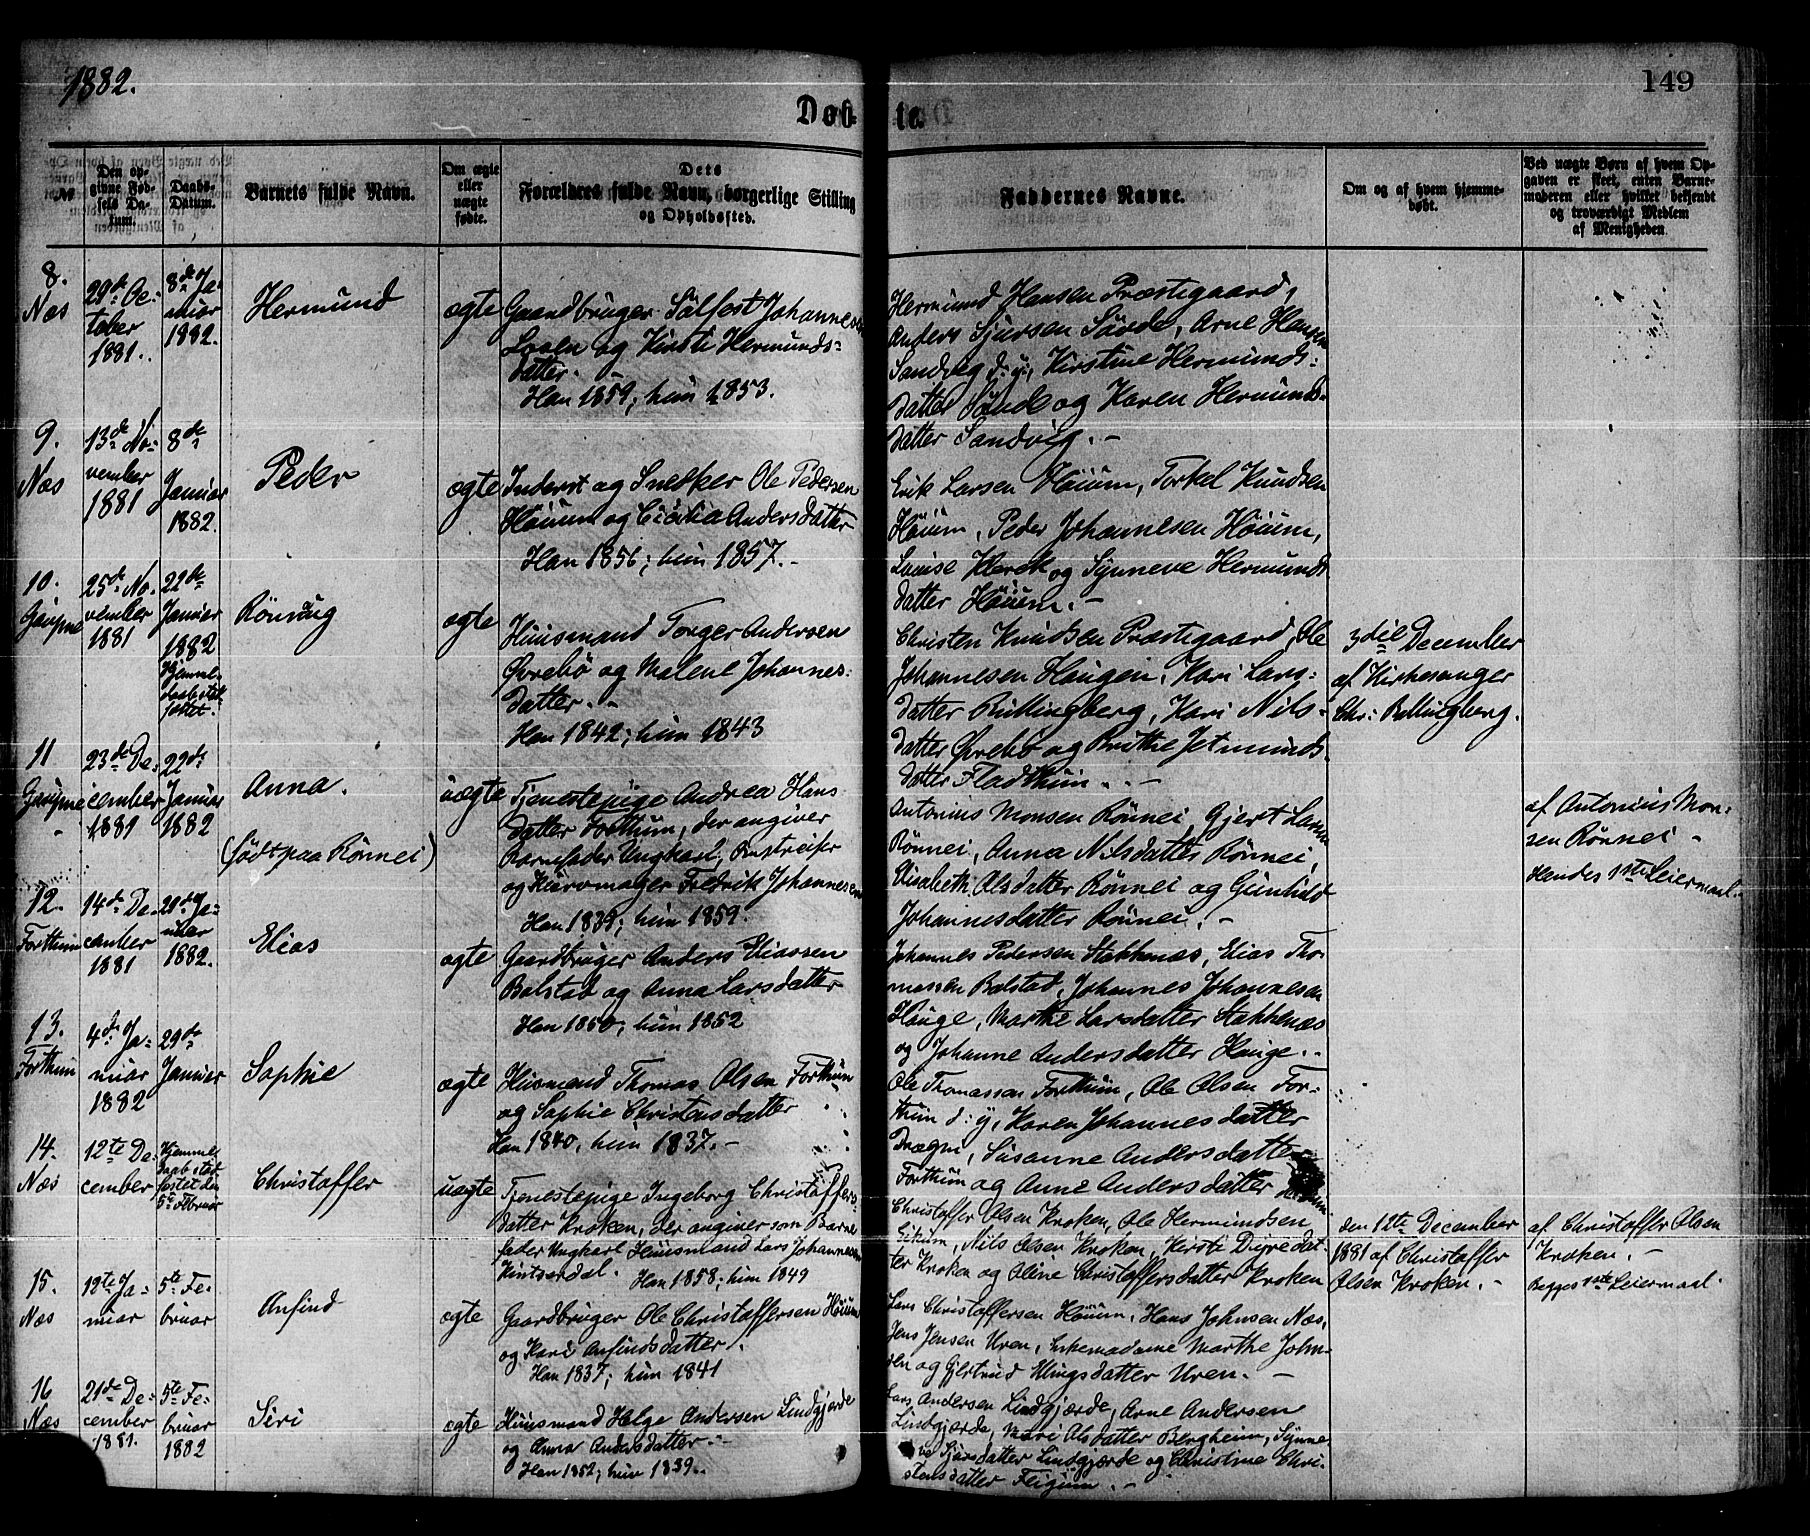 1882.
149
Døbte.
№
Den opgivne Fødsels Datum.
Daabs-Datum.
Barnets fulde Navn.
Om ægte eller uægte fødte.
Dets Forældres fulde Navn, borgerlige Stilling og Opholdssted.
Faddernes Navne.
Om og af hvem hjemmedøbt.
Ved uægte Børn af hvem Opgaven er skeet, enten Barnemoderen eller hvilket bekjendt og troværdigt Medlem af Menigheden.
8.
Næs
29de Oc-
tober
1881.
8de Ja-
nuar
1882.
Hermund
ægte
Gaardbruger Sølfest Johannesen
og Kirsti Hermunds-
datter. -
Han 1859; hun 1853.
Hermund Hansen Præstegaard,
Anders Sjursen Sørde, Arne Hansen
Sandvig d: y:, Kirstine Hermunds-
datter Sønde og Karen Hermunds-
datter Sandvig. -
9.
Næs
13de No-
vember
1881
8de
Januar
1882.
Peder
ægte
Inderst og Snedker Ole Pedersen
Høium og Cicilia Andersdatter
Han 1856; hun 1857. -
Erik Larsen Høium, Torkel Knudsen
Høium, Peder Johannesen Høium,
Louise Klerck og Synneve Hermunds
datter Høium. -
10.
Gaupne
25de No-
vember
1881
22de
Januar
1882
Hjemme-
daab stad-
fæstet.
Rønnaug
ægte
Huusmand Torger Andersen
Øvrebø og Malene Johannes-
datter. -
Han 1842; hun 1843
Christen Knudsen Præstegaard, Ole
Johannesen Haugen, Kari Lars-
datter Bullingberg, Kari Nils-
datter Øvrebø og Brithe Jetmunds-
datter Fladthun. -
3die December
af Kirkesanger
Chr: Bollingberg.
11
Gaupne
23de De-
cember
1881
22de
Januar
1882
Anna.
(født paa Rønnei)
uægte
Tjenestepige Andrea Hans
datter Forthun, der angiver
Barnefader Ungkarl, Omstreifer
og Kurvmager Fredrik Johannesen
Han 1839; hun 1859.
Antonius Monsen Rønnei, Gjert Larsen
Rønnei, Anna Nilsdatter Rønnei,
Elisabeth Olsdatter Rønnei og Gunhild
Johannesdatter Rønnei. -
af Antonius Mon-
sen Rønnei -
Hendes 1ste Leiermaal.
12.
Forthun
14de De-
cember
1881
29de Ja-
nuar
1882.
Elias
ægte
Gaardbruger Anders Eliassen
Bolstad og Anna Larsdatter
Han 1850; hun 1852
Johannes Pedersen Stokkenæs, Elias Tho-
massen Bolstad, Johannes Johannesen
Hauge, Marthe Larsdatter Stokkenæs
og Johanne Andersdatter Hauge. -
13.
Forthun
4de Ja-
nuar
1882
29de
Januar
Sophie
ægte
Huusmand Thomas Olsen Forthun
og Sophie Christensdatter
Han 1840, hun 1837. -
Ole Thomassen Forthun, Ole Olsen For-
thun d: y, Karen Johannesdatter
Drægni, Susanne Andersdatter
Forthun og Anne Andersdatter
14.
Næs
12te De-
cember
Hjemme-
daab stad-
fæstet den
5te Februar
Christaffer
uægte
Tjenestepige Ingeborg Christaffers-
datter Kroken, der angiver som Barne-
fader Ungkarl Huusmand Lars Johannesen
Kinserdal. Han 1858; hun 1849
Christaffer Olsen Kroken, Ole Hermundsen
Eikum, Nils Olsen Kroken, Kirsti Dyredat-
ter Kroken og Oline Christaffersdatter Kroken
den 12te December
1881 af Christaffer
Olsen Kroken. -
af Christaffer Olsen
Kroken. -
Begges 1ste Leiermaal.
15.
Næs
12te Ja-
nuar
5te Fe-
bruar
Anfind
ægte
Gaardbruger Ole Christaffersen Høium
og Kari Anfindsdatter.
Han 1837; hun 1841
Lars Christaffersen Høium, Hans Johnsen Næs,
Jens Jensen Uren, Enkemadame Marthe John-
sen og Gjertrud Ellingsdatter Uren. -
16
Næs
21de De-
cember
1881.
5te Fe-
bruar
1882
Siri
ægte
Huusmand Helge Andersen Lindgjerde
og Anna Andersdatter. -
Han 1852; hun 1839.
Lars Andersen Lindgjærde, Arne Andersen
Lindgjærde, Mari Olsdatter Bergheim, Synne-
ve Sjursdatter Lindgjærde og Christine Chri-
stensdatter Feigum. -